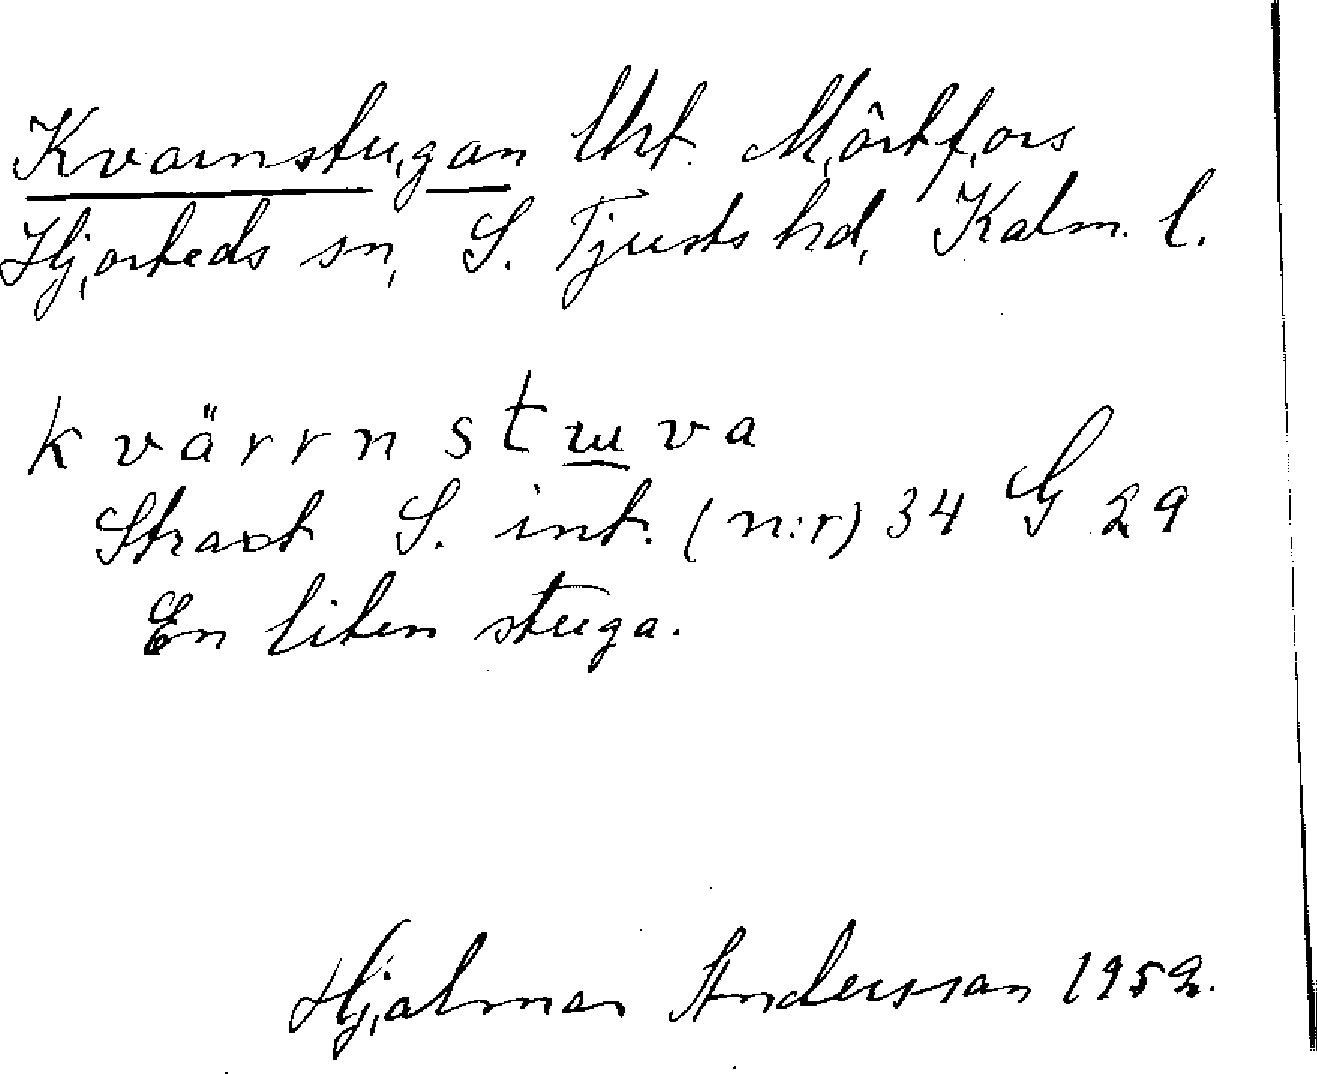 Kvarnstugan Urf. Mörtfors
Hjorteds sn, S. Tjusts hd, Kalm. l.
kvärrnstuva
Strax S. int. (n:r) 34 G 29
En liten stuga.
Hjalmar Andersson 1952.